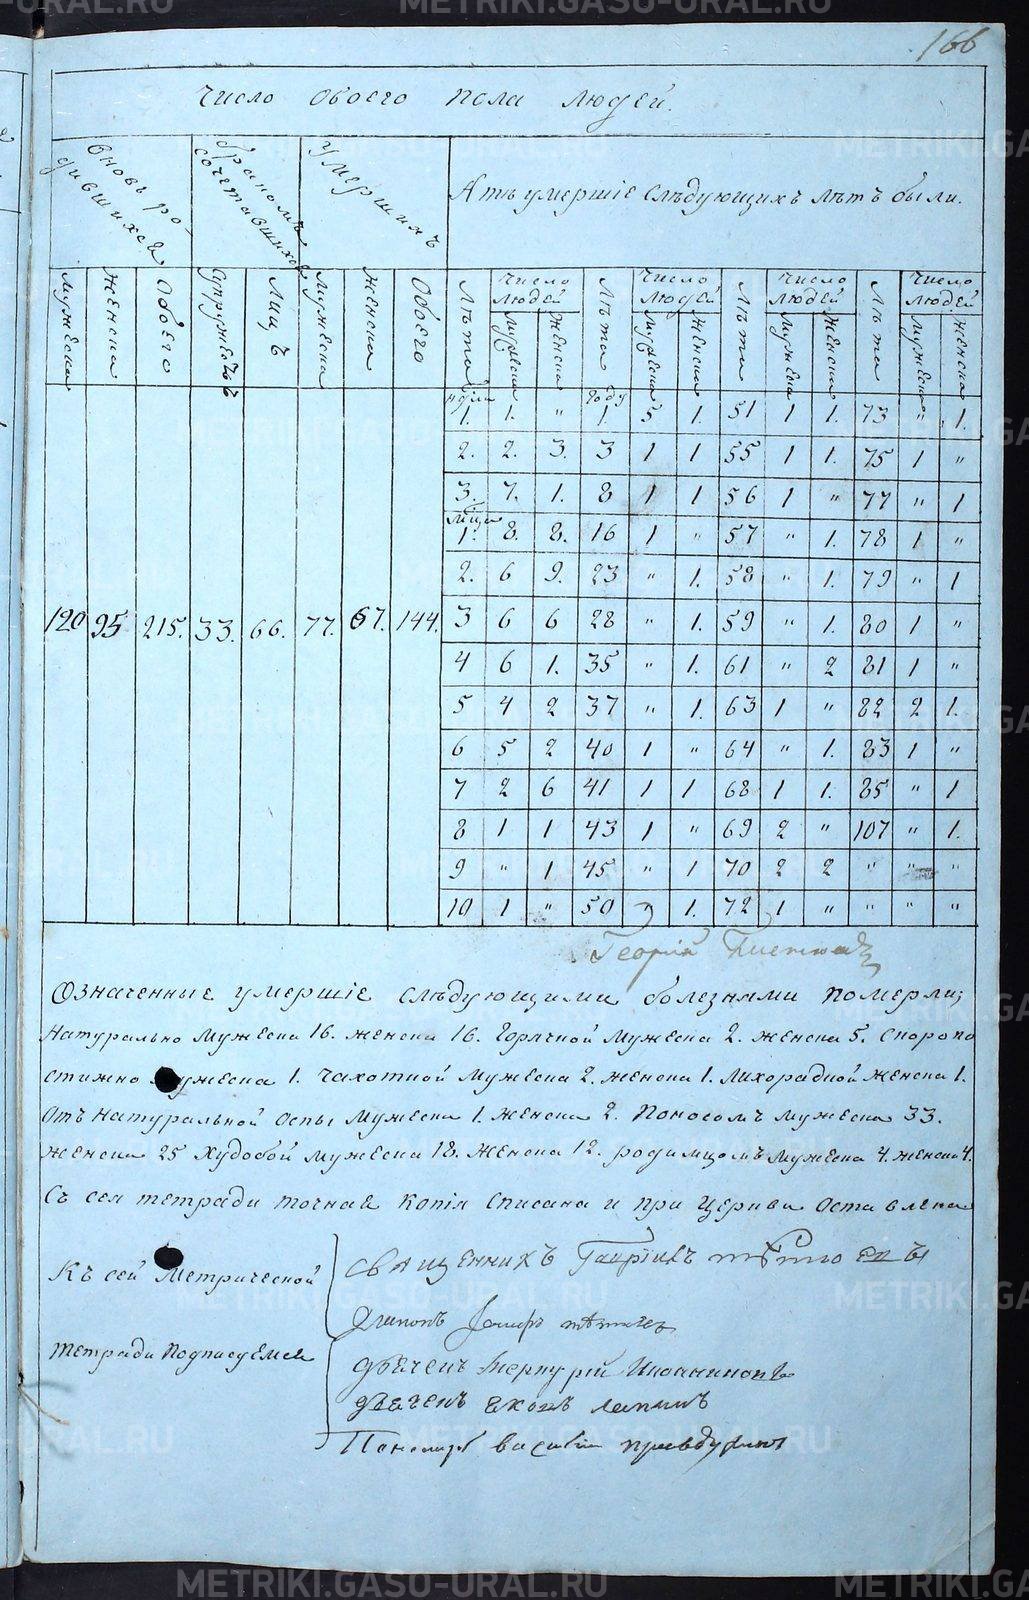 166
Число обоего пола людей.
вновь ро-
дившихся
бракомъ
сочетавшихся
умершихъ
А тѣ умершіе слѣдующихъ лѣтъ были.
мужеска женска обоего супружествъ лицъ мужеска женска обоего лѣта число людей лѣта число людей лѣта число людей лѣта число людей
мужеска женска мужеска женска мужеска женска мужеска женска
1. 1. " году 1. 5 1. 51 1 1. 73 " 1.
2. 2. 3. 3 1 1 55 1 1. 75 1 "
3. 7. 1. 8 1 1 56 1 " 77 " 1
1. 8. 8. 16 1 " 57 " 1. 78 1 "
2. 6 9. 23 " 1. 58 " 1. 79 " 1
120 95 215. 33. 66. 77. 67. 144. 3 6 6 28 " 1. 59 " 1. 80 1 "
4 6 1. 35 " 1. 61 " 2 81 1 "
5 4 2 37 " 1. 63 1 " 82 2 1.
6 5 2 40 1 " 64 " 1. 83 1 "
7 2 6 41 1 1 68 1 1. 85 " 1
8 1 1 43 1 " 69 2 " 107 " 1.
9 " 1 45 " 1 70 2 2 " " "
10 1 " 50 " 1. 72 1 " " " "
Георгій
Означенные умершіе слѣдующими болезнями померли;
Натурально мужеска 16. женска 16. горячкой мужеска 2. женска 5. скоропо
стижно мужеска 1. чахоткой мужеска 2. женска 1. лихорадкой женска 1.
отъ натуральной оспы мужеска 1. женска 2. поносомъ мужеска 33.
женска 25 худобой мужеска 18. женска 12. родимцомъ мужеска 4. женска 4.
Съ сей тетради точная копія списана и при церкви оставлена
Къ сей Метрической
тетради подписуемся
священникъ
дьячекъ Меркурій
дьячекъ
Пономарь василій
METRIKI.GASO-URAL.RU